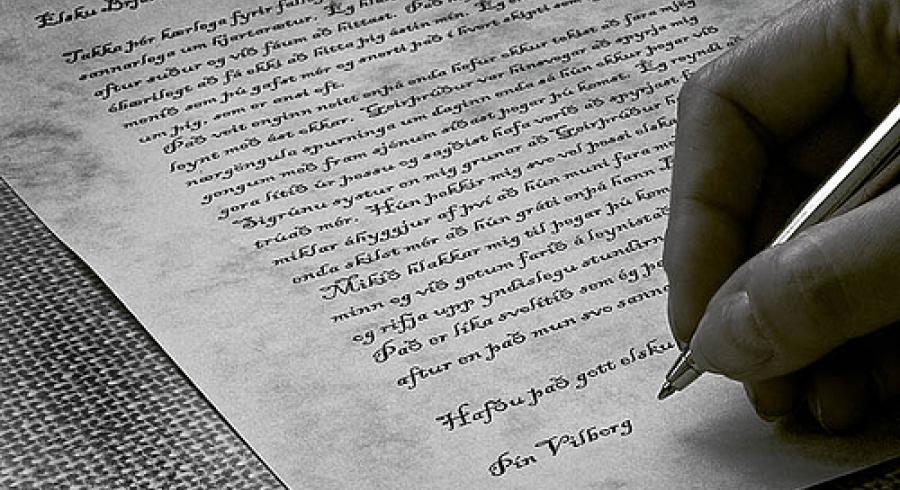 Elsku
Takka þér kærlega fyrir
sannarlega um hjartarætur. Ég
aftur suður og við fáum að hittast. Það
óbærilegt að fá ekki að hitta þig ástin mín. Ég er
menið sem þú gafst mér og snerti það í hvert skipti sem
um þig, sem er ansi oft.
Það veit enginn neitt enþá enda hefur okkur tekist að fara mjög
leynt með ást okkar. Geirþrúður var hinsvegar að spyrja mig
nærgöngula spurninga um daginn enda sá hún okkur þegar við
gengum með fram sjónum síðast þegar þú komst. Ég reyndi að
gera lítið úr þessu og sagðist hafa verið að spyrjast
Sigrúnu systur en mig grunar að Geirþrúður
trúað mér. Hún þekkir mig svo vel þessi elska
miklar áhyggjur af því að hún muni fara með
enda skilst mér að hún gráti enþá hann
Mikið hlakkar mig til þegar þú
minn og við getum farið á leynistað
og rifja upp yndislegu
Það er líka svolítið sem ég
aftur en það mun svo
Hafðu það gott elsku
Þín Vilborg